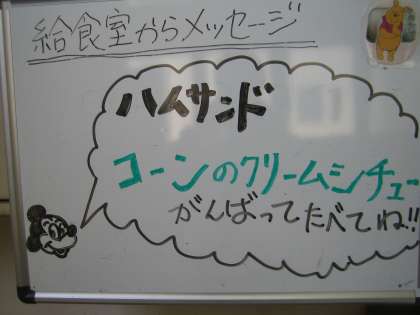 給食室からメッセージ
ハムサンド
コーンのクリームシチュー
がんばってたべてね!!